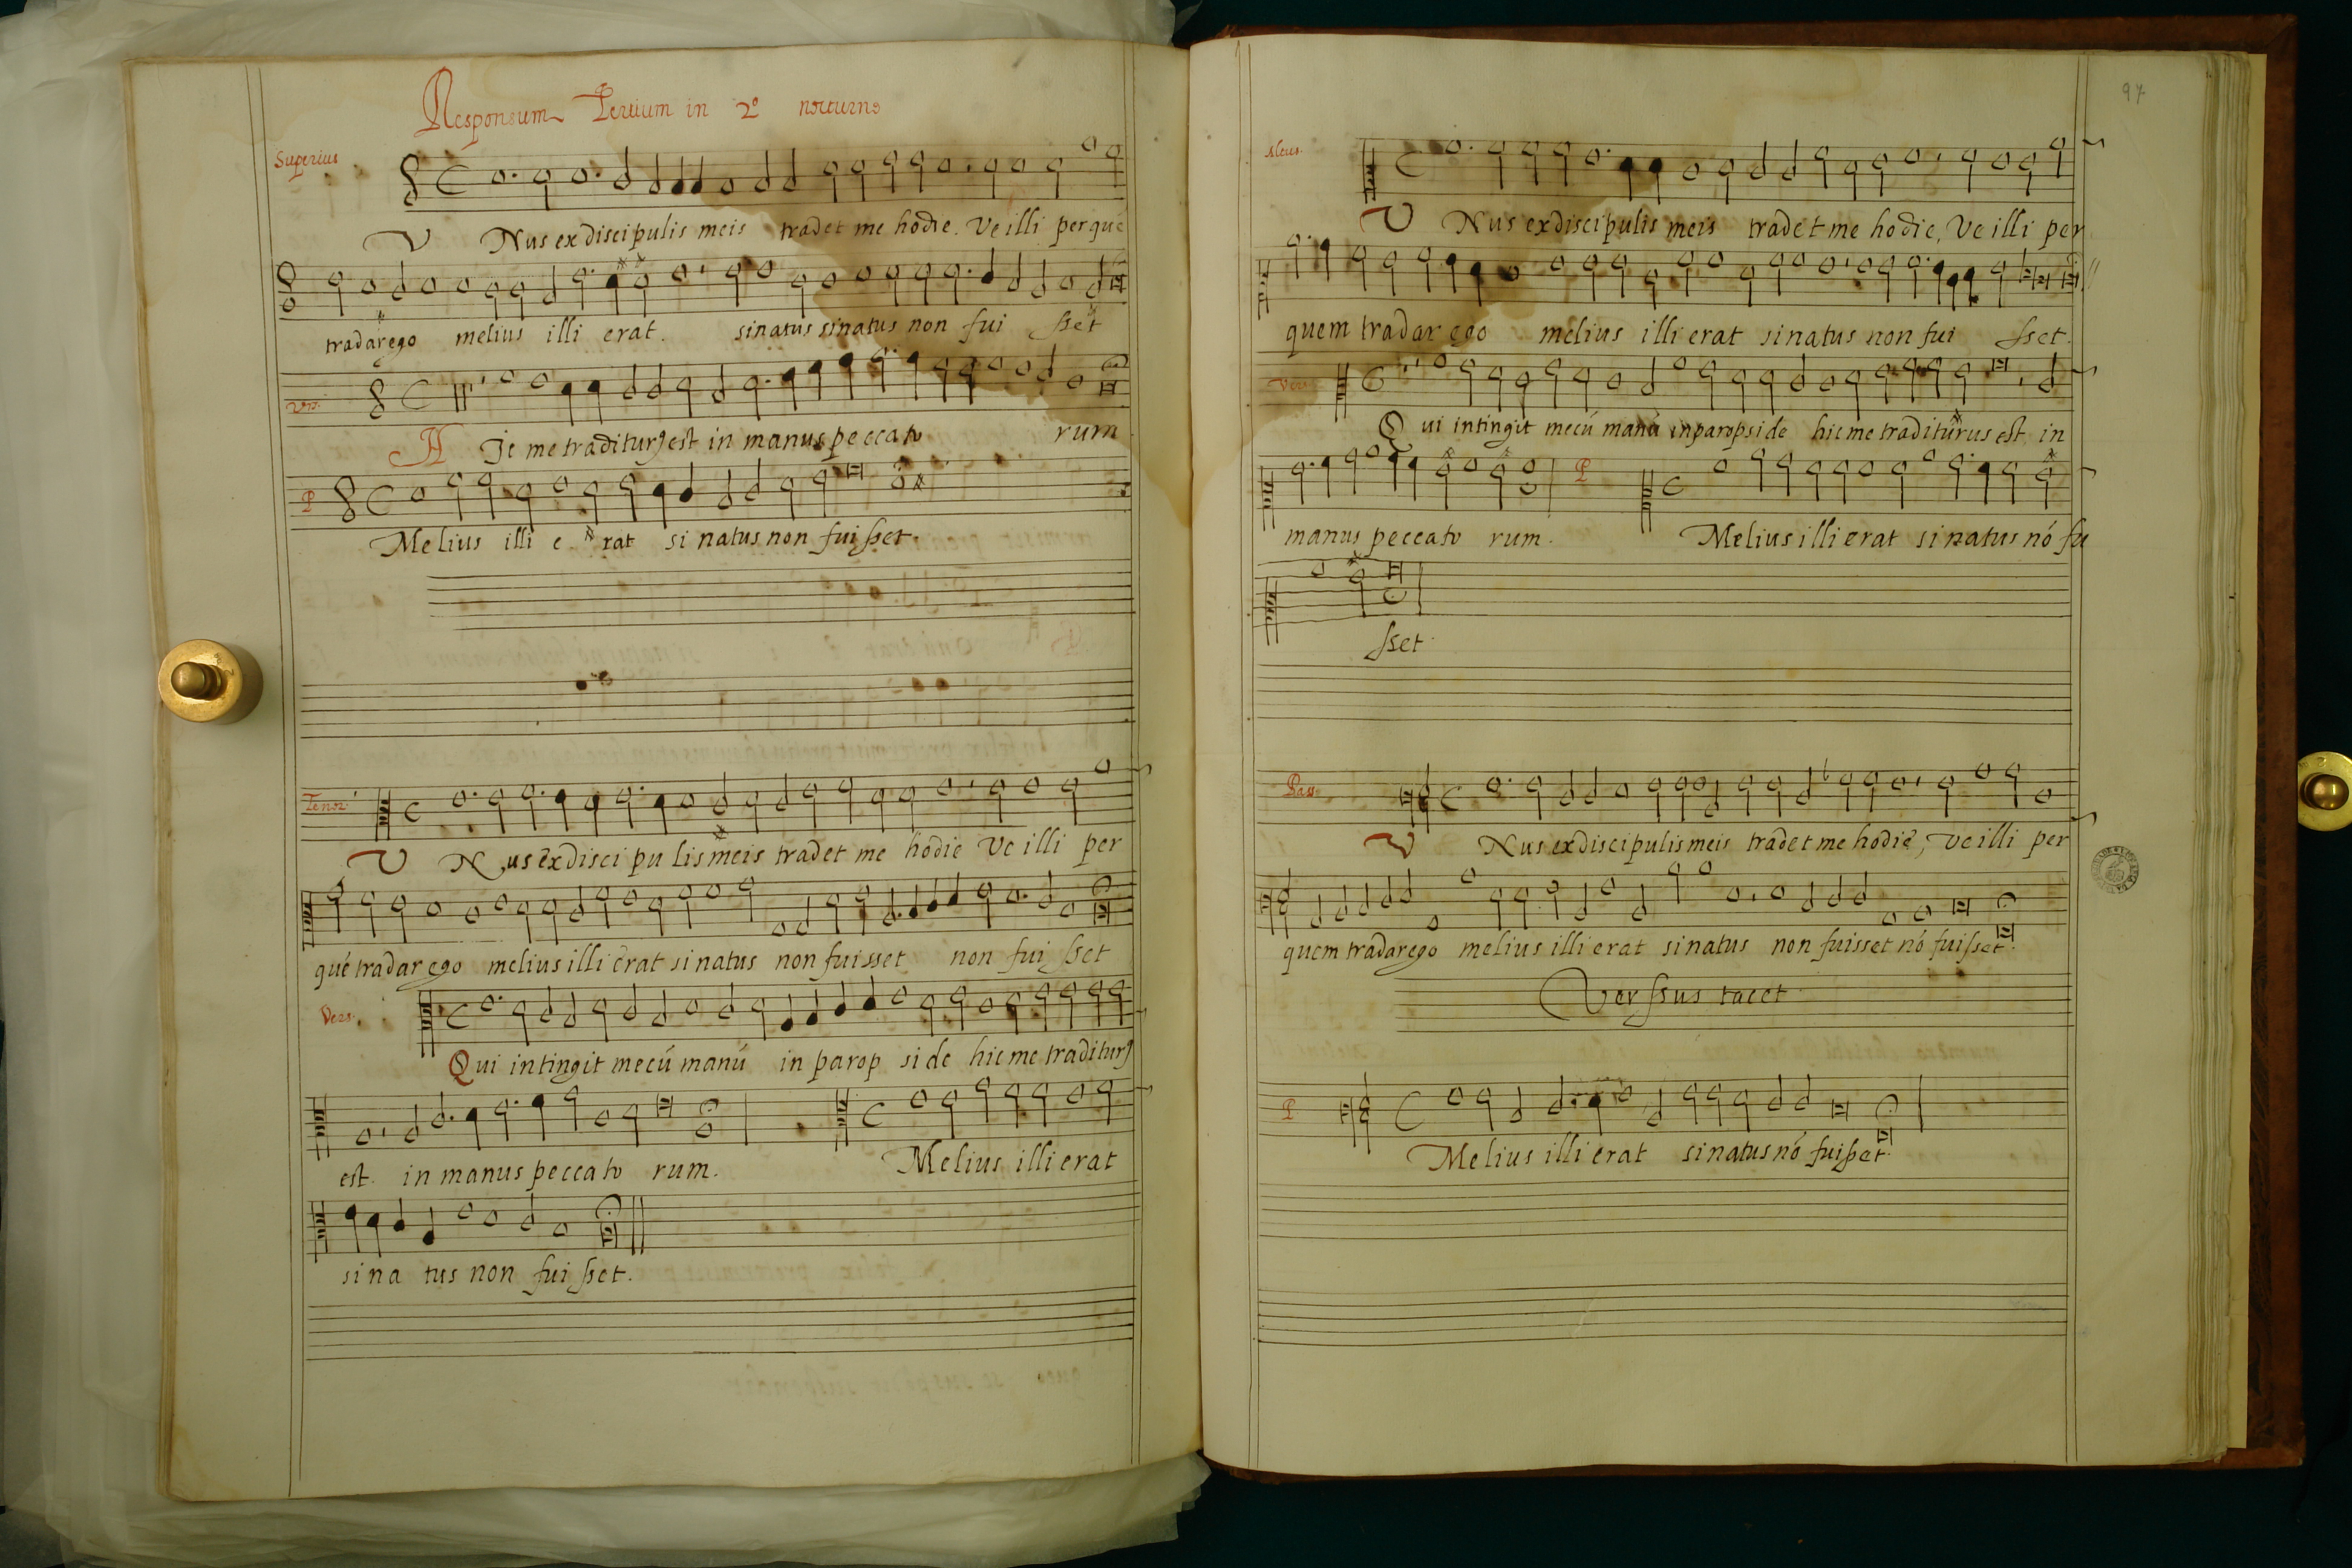 Responsum Tertium in 2º nocturno
Superius
V Nus ex discipulis meis tradet me hodie. Ve illi per qué
tradar ego melius illi erat. si natus si natus non fui sset
Vers.
H Ic me traditurȝ est in manus peccato rum
P
Melius illi e rat si natus non fuisset.
Tenor
V Nus ex disci pu lis meis tradet me hodie Ve illi per
qué tradar ego melius illi erat si natus non fuisset non fui sset
Vers.
Qui intingit mecú manú in parop side hic me traditurȝ
est. in manus peccato rum. Melius illi erat
si na tus non fui sset.
97
Altus.
V Nus ex discipulis meis tradet me hodie, Ve illi per
quem tradar ego melius illi erat si natus non fui sset.
Vers.
Qui intingit mecú manú in paropside hic me traditurus est in
P
manus peccato rum. Melius illi erat si natus nó fu
sset.
Bass.
V Nus ex discipulis meis tradet me hodie, Ve illi per
quem tradar ego melius illi erat si natus non fuisset nó fuisset.
Verssus tacet
P
Melius illi erat si natus nó fuisset.